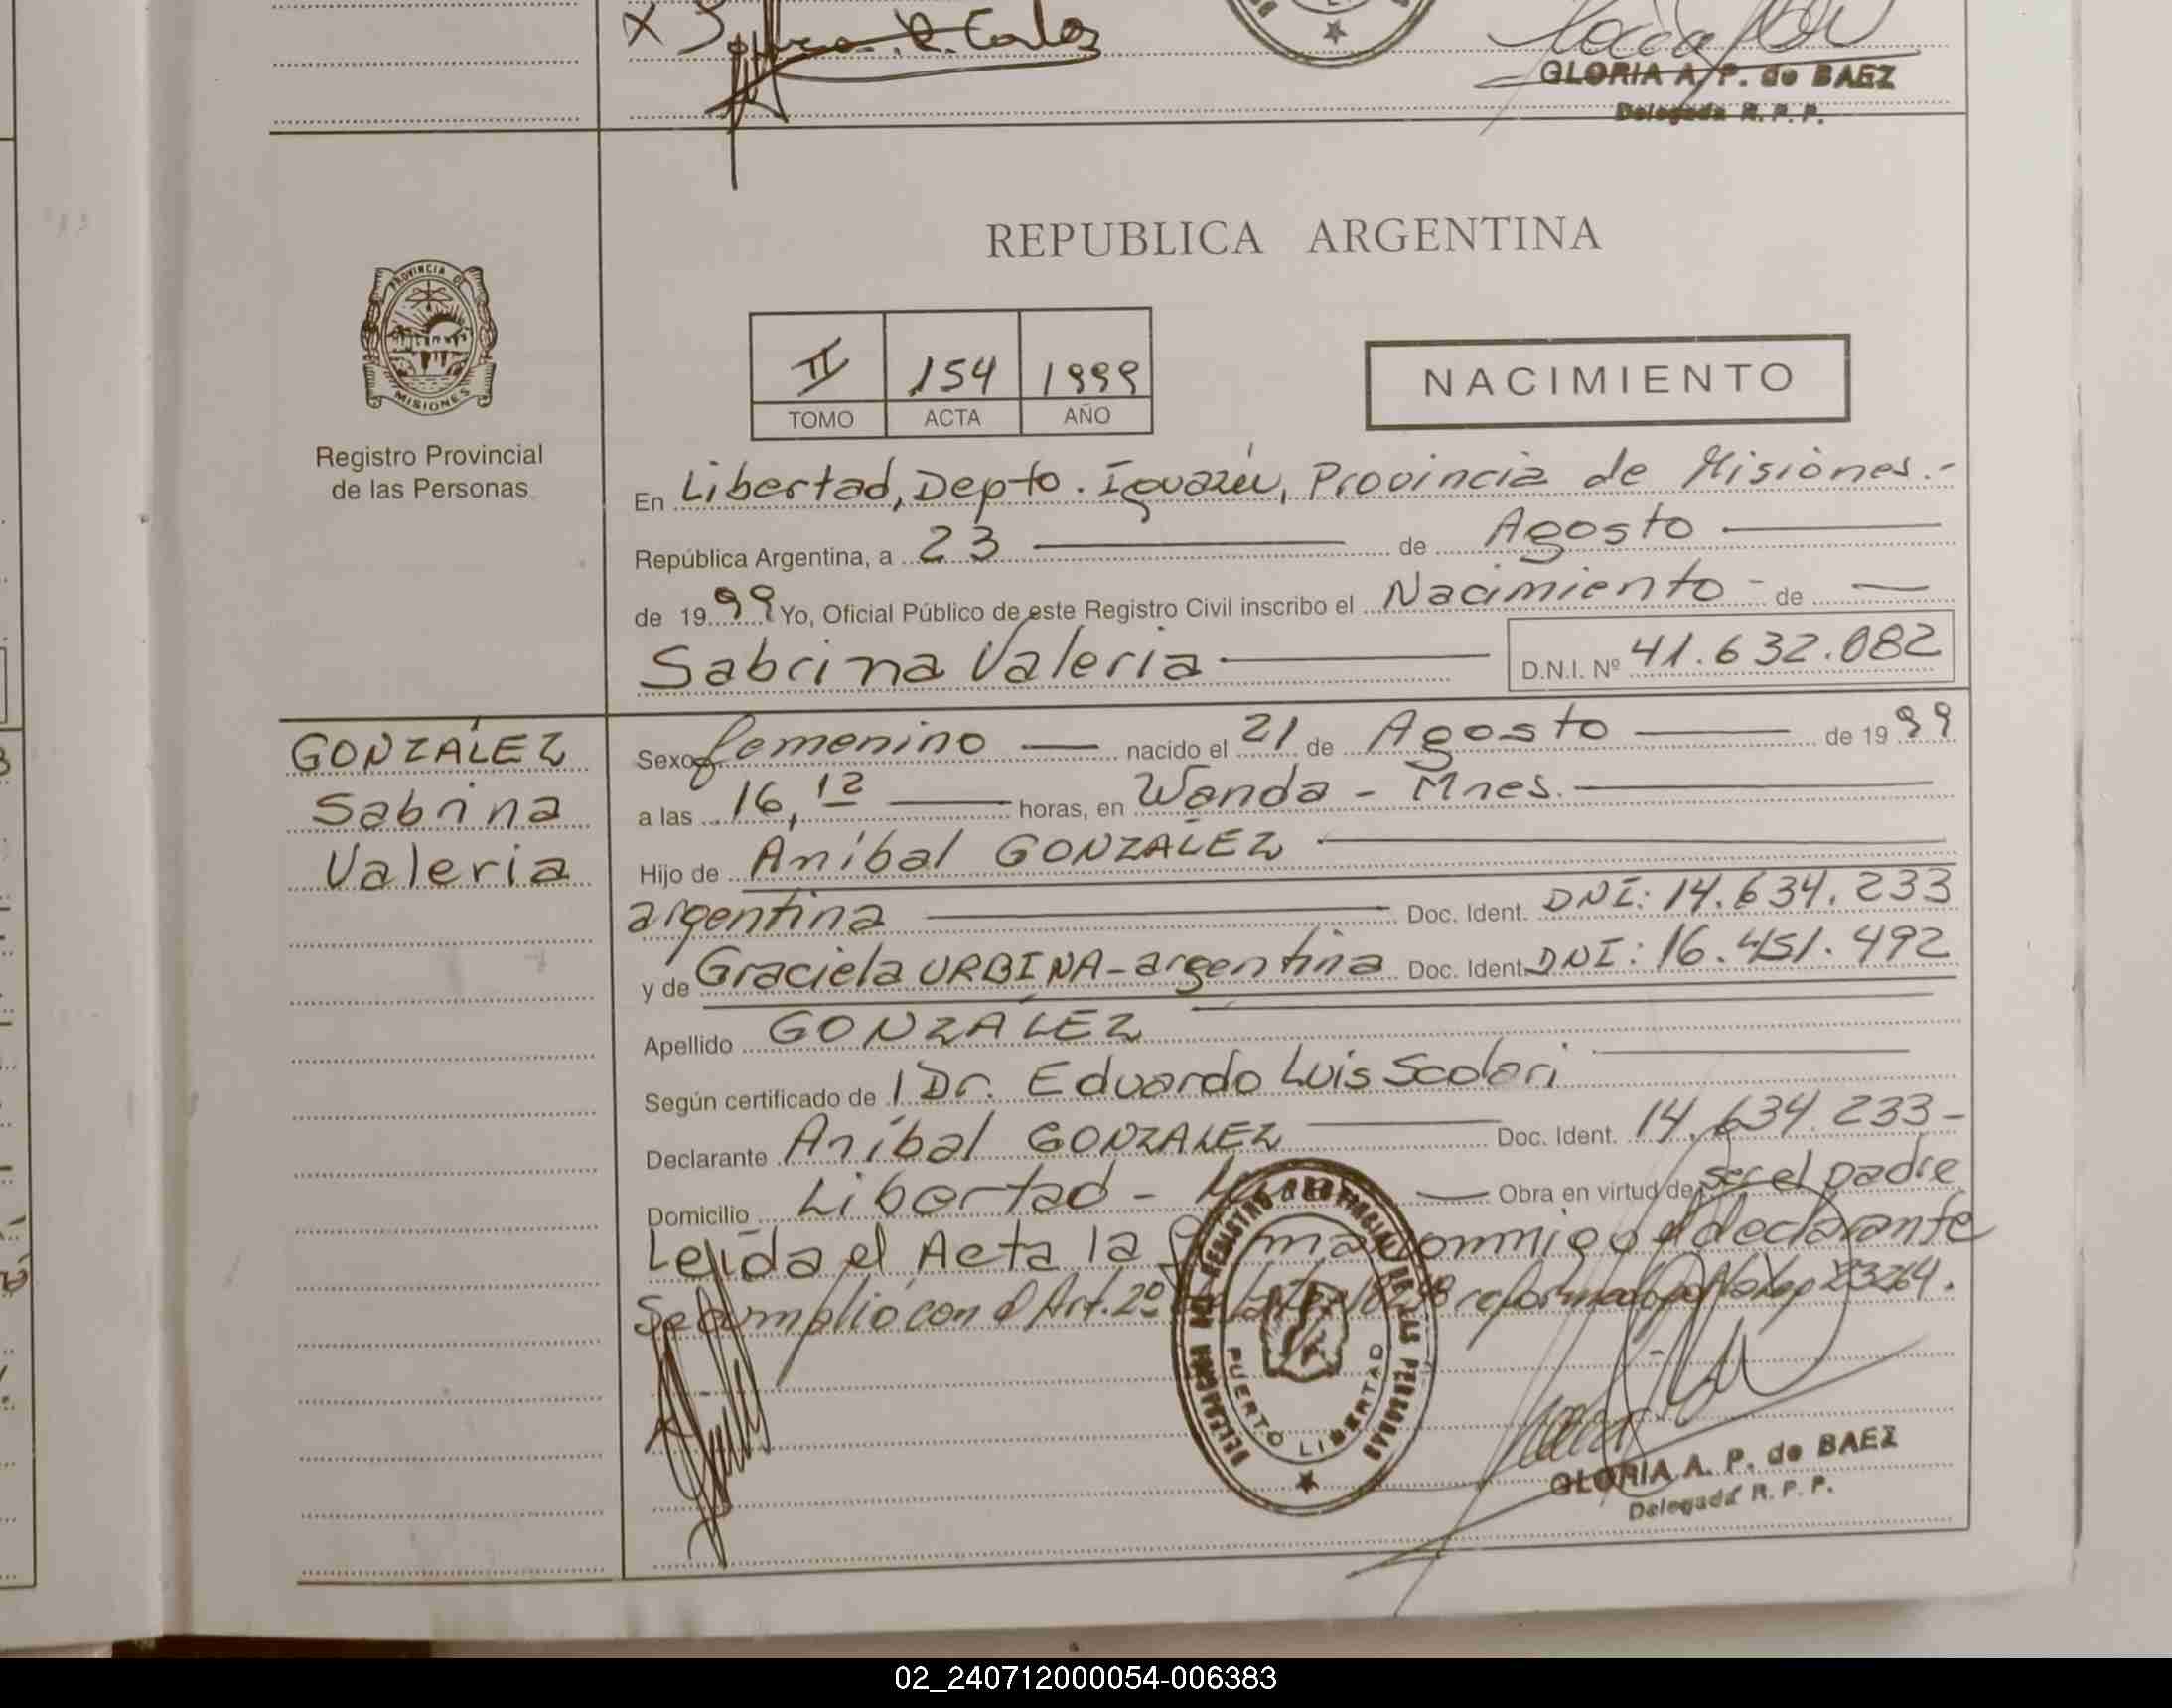 GLORIA A. P. de BAEZ
Delegada R. P. P.
REPUBLICA ARGENTINA
PROVINCIA DE
MISIONES
Registro Provincial
de las Personas
II 154 1999
TOMO ACTA AÑO
NACIMIENTO
En Libertad, Depto. Iguazú, Provincia de Misiones.-
República Argentina, a 23 de Agosto
de 1999 Yo, Oficial Público de este Registro Civil inscribo el Nacimiento - de —
Sabrina Valeria D.N.I. Nº 41.632.082
GONZÁLEZ
Sabrina
Valeria
Sexo femenino — nacido el 21 de Agosto — de 1999
a las 16,12 — horas, en Wanda - Mnes.
Hijo de Aníbal GONZÁLEZ
argentina Doc. Ident. DNI: 14.634.233
y de Graciela URBINA - argentina Doc. Ident. DNI: 16.451.492
Apellido GONZÁLEZ
Según certificado de 1 Dr. Eduardo Luis Scolari
Declarante Aníbal GONZALEZ Doc. Ident. 14.634.233-
Domicilio Libertad - Obra en virtud de ser el padre
Leída el Acta la firma conmigo el declarante
Se cumplió con el Art. 2º 18248 reformado por la Ley 23264.
DELEGACION DEL REGISTRO PROVINCIAL DE LAS PERSONAS
PUERTO LIBERTAD
GLORIA A. P. de BAEZ
Delegada R. P. P.
02_240712000054-006383